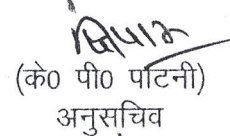 (के0 पी0 पाटनी)
अनुसचिव